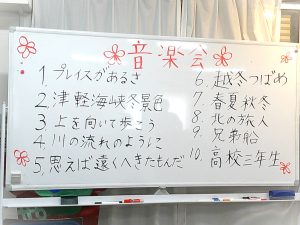 音楽会
1. プレイスがあるさ
2. 津軽海峡冬景色
3. 上を向いて歩こう
4. 川の流れのように
5. 思えば遠くへきたもんだ
6. 越冬つばめ
7. 春夏秋冬
8. 北の旅人
9. 兄弟船
10. 高校三年生